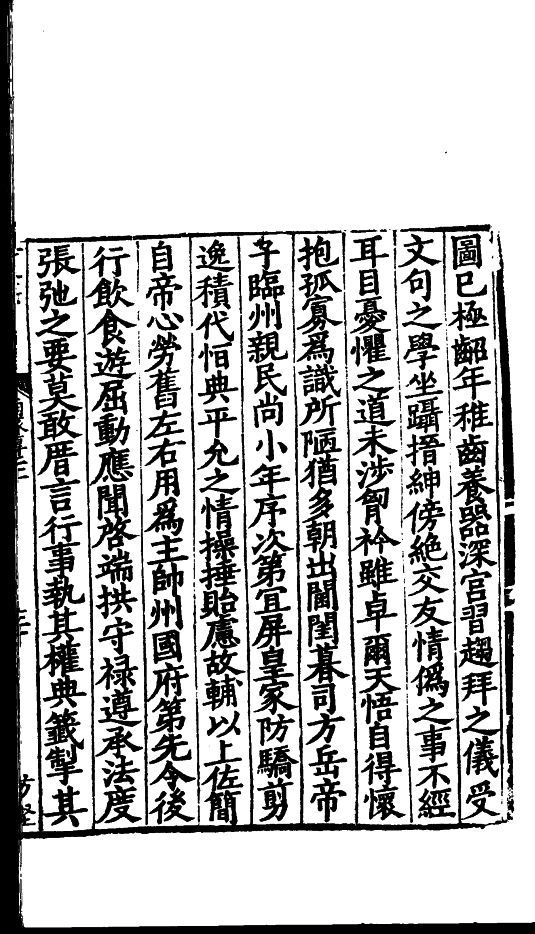 圖已極齠年稚齒養器深宮習趨拜之儀受
文句之學坐躡搢紳傍絕交友情僞之事不經
耳目憂懼之道未涉胷衿雖卓爾天悟自得懷
抱孤寡爲識所陋猶多朝出閫閨暮司方岳帝
子臨州親民尚小年序次第宜屏皇家防驕剪
逸積代恒典平允之情操捶貽慮故輔以上佐簡
自帝心勞舊左右用爲主帥州國府第先令後
行飲食遊居動應聞啓端拱守祿遵承法度
張弛之要莫敢厝言行事執其權典籤掣其